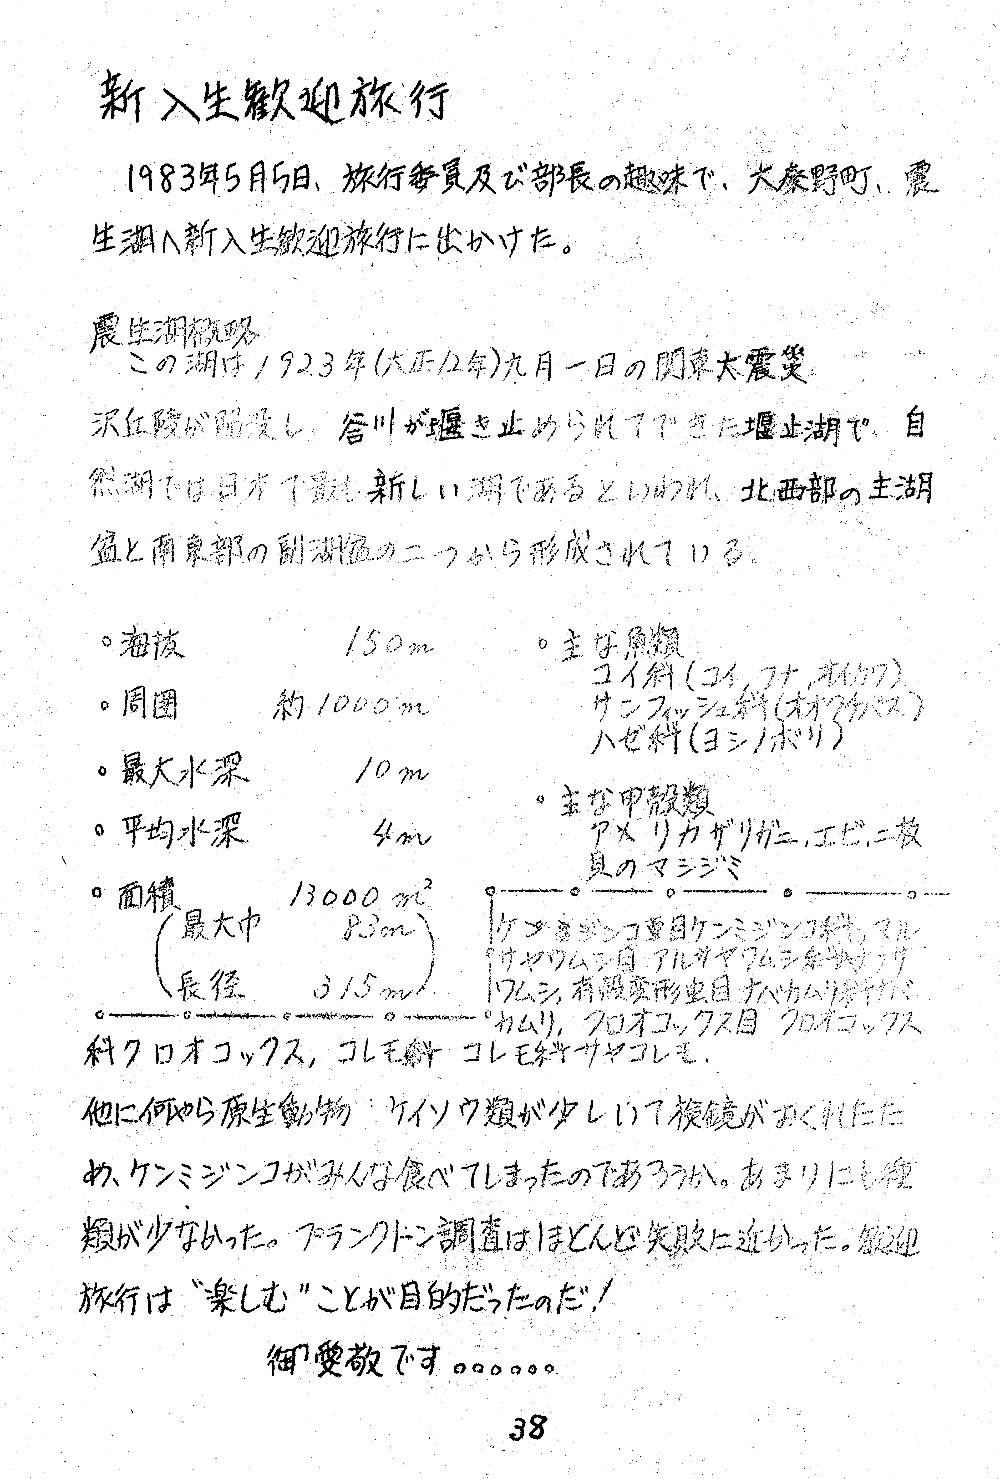 新入生歓迎旅行
1983年5月5日、旅行委員及び部長の趣味で、大秦野町、震
生湖へ新入生歓迎旅行に出かけた。
震生湖概略
この湖は1923年(大正12年)九月一日の関東大震災
沢丘陵が陥没し、谷川が堰き止められてできた堰止湖で、自
然湖では日本で最も新しい湖であるといわれ、北西部の主湖
盆と南東部の副湖盆の二つから形成されている。
。海抜 150m
。周囲 約1000m
。最大水深 10m
。平均水深 4m
。面積 13000m²
(最大巾 83m
長径 315m)
。主な魚類
コイ科(コイ,フナ,オイカワ)
サンフィッシュ科(オオクチバス)
ハゼ科(ヨシノボリ)
。主な甲殻類
アメリカザリガニ,エビ,二枚
貝のマシジミ
ケンミジンコ亜目ケンミジンコ科,
サヤワムシ目
ワムシ,有殻変形虫目 ナベカムリ科ナベ
カムリ, クロオコックス目 クロオコックス
科クロオコックス, コレモ科 コレモ科サヤコレモ.
他に何やら原生動物 ケイソウ類が少しいて検鏡がおくれたた
め、ケンミジンコがみんな食べてしまったのであろうか。あまりにも種
類が少なかった。プランクトン調査はほとんど失敗に近かった。歓迎
旅行は"楽しむ"ことが目的だったのだ!
御愛敬です。。。。。。
38